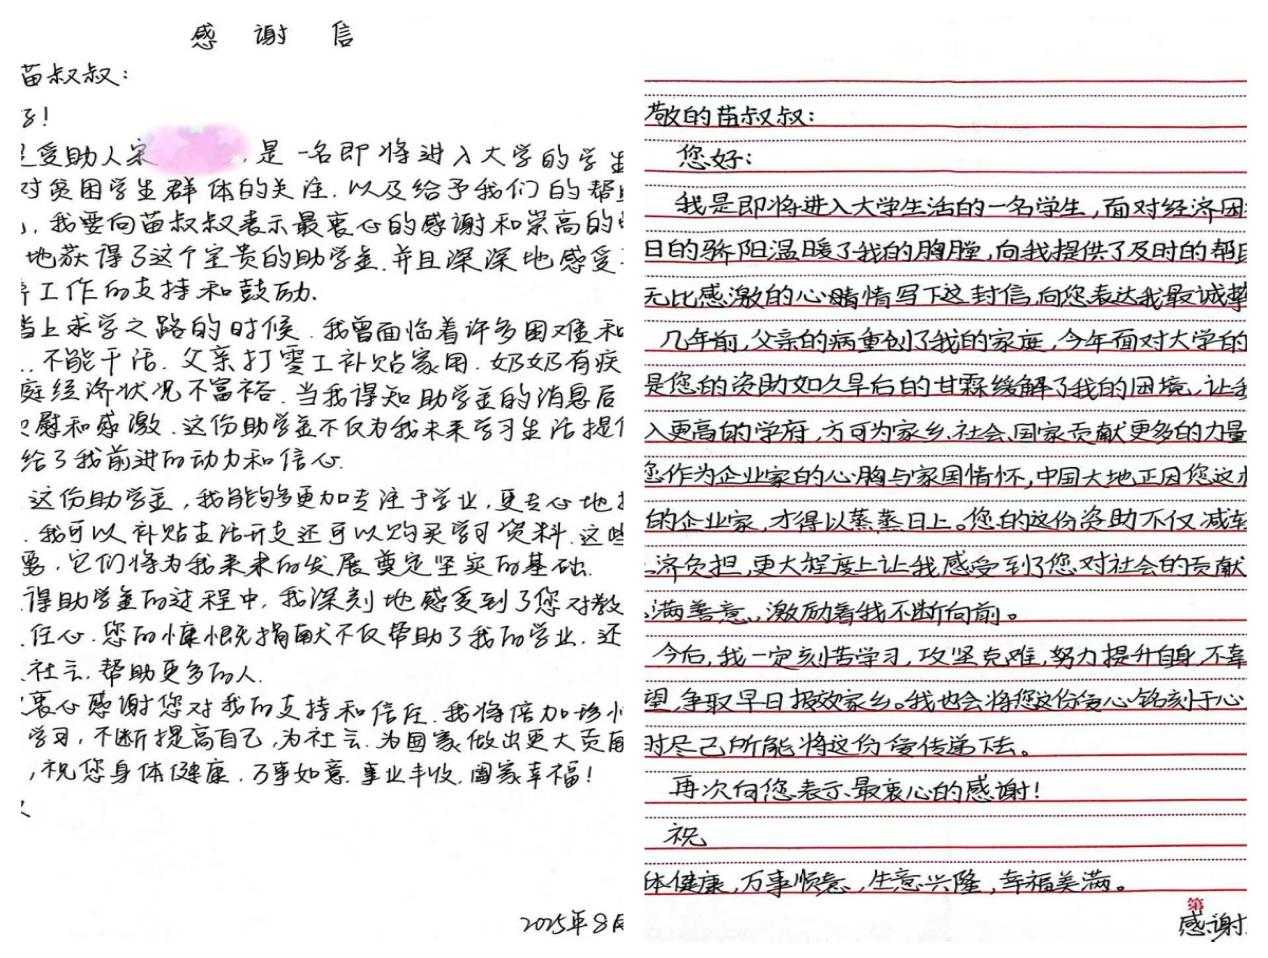 感谢信
苗叔叔：
受助人宋 ，是一名即将进入大学的学生
对贫困学生群体的关注，以及给予我们的帮助
，我要向苗叔叔表示最衷心的感谢和崇高的
地获得了这个宝贵的助学金，并且深深地感受
工作的支持和鼓励.
上求学之路的时候，我曾面临着许多困难和
，不能干活，父亲打零工补贴家用，奶奶有疾
庭经济状况不富裕，当我得知助学金的消息后
慰和感激，这份助学金不仅为我未来学习生活提供
给了我前进的动力和信心.
这份助学金，我能够更加专注于学业，更专心地
，我可以补贴生活开支还可以购买学习资料，这些
要，它们将为我未来的发展奠定坚实的基础.
得助学金的过程中，我深刻地感受到了您对教
任心，您的慷慨捐献不仅帮助了我的学业，还
社会，帮助更多的人.
衷心感谢您对我的支持和信任，我将倍加珍惜
学习，不断提高自己，为社会、为国家做出更大贡献
，祝您身体健康，万事如意，事业丰收，阖家幸福！
2025年8月
敬的苗叔叔：
您好：
我是即将进入大学生活的一名学生，面对经济困
日的骄阳温暖了我的胸膛，向我提供了及时的帮助
无比感激的心情写下这封信，向您表达我最诚挚
几年前，父亲的病重创了我的家庭，今年面对大学的
是您的资助如久旱后的甘霖缓解了我的困境，让我
入更高的学府，方可为家乡、社会、国家贡献更多的力量
您作为企业家的心胸与家国情怀，中国大地正因您这
的企业家，才得以蒸蒸日上。您的这份资助不仅减轻
济负担，更大程度上让我感受到了您对社会的贡献
满善意，激励着我不断向前。
今后，我一定刻苦学习，攻坚克难，努力提升自身，不辜
望，争取早日报效家乡。我也会将您这份爱心铭刻于心
时尽己所能将这份爱传递下去。
再次向您表示最衷心的感谢！
祝
体健康，万事顺意，生意兴隆，幸福美满。
第
感谢